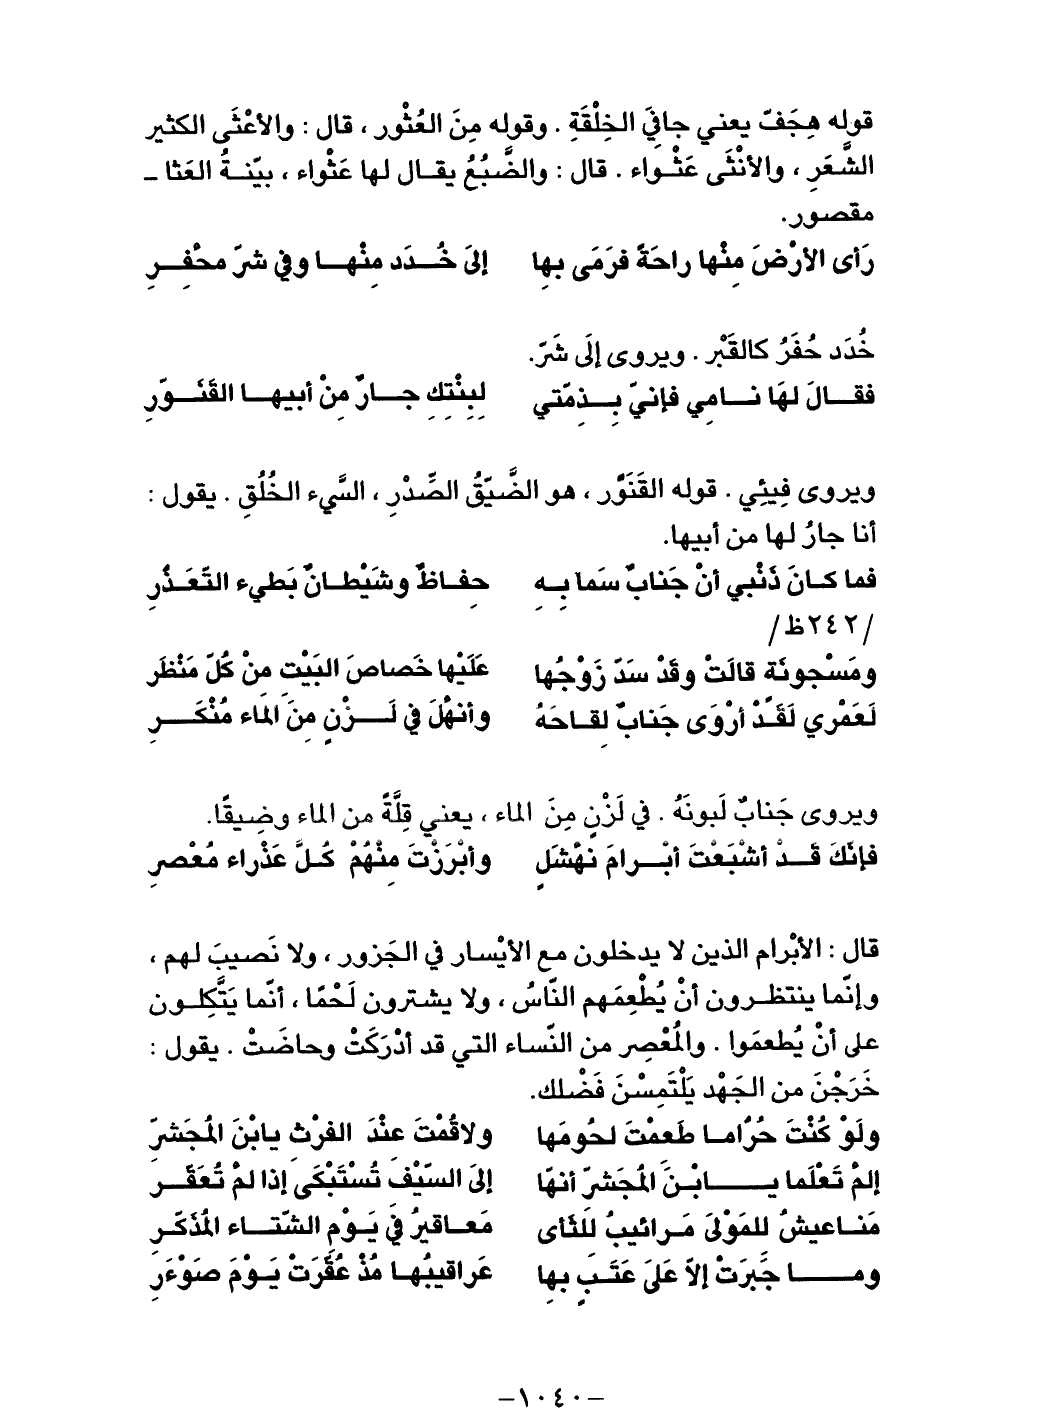 قوله هِجَفّ يعني جافيَ الخِلْقَةِ . وقوله مِنَ العُثْورِ ، قال : والأعْثَى الكثير
الشَّعَرِ ، والأنْثَى عَثْـواء . قال : والضَّبُعُ يقـال لها عَثْواء ، بيّنـةُ العَثا ـ
مقصور.
رَأى الأرْضَ مِنْها راحَةً فرَمَى بهِا إلىَ خُـدَد مِنْهـا وفي شرّ محْفِرِ
خُدَد حُفَرُ كالقَبْر . ويروى إلَى شَرّ.
فقـالَ لهَا نـامِي فإنيّ بِـذِمّتي لِبِنْتِكِ جـارٌ مِنْ أبيهـا القَنَـوّرِ
ويروى فِيئِي . قوله القَنَوَّر ، هو الضَّيّقُ الصِّدْرِ ، السَّيء الخُلُقِ . يقول :
أنا جارُ لها من أبيها.
فما كـانَ ذَنْبي أنْ جَنابٌ سَما بِـهِ حِفـاظٌ وشَيْطـانٌ بَطيء التّعَـذُّرِ
/٢٤٢ظ/
ومَسْجونَة قالَتْ وقَدْ سَدّ زَوْجُها عَلَيْها خَصاصَ البَيْت مِنْ كُلّ مَنْظَر
لَعَمْري لَقَـدْ أرْوَى جَنابٌ لِقـاحَهُ وأنهْلَ في لَـزْنٍ مِنَ الَماء مُنْكَـرِ
ويروى جَنابٌ لَبونَهُ . في لَزْنٍ مِنَ الماء ، يعني قِلَّةً من الماء وضِيقًا.
فإنّكَ قَـدْ أشْبَعْتَ أبْـرامَ نهْشَلٍ وأبْرَزْتَ مِنْهُمْ كُـلَّ عَذْراء مُعْصِرِ
قال : الأبْرام الذين لا يدخلون مع الأيْسار في الجَزور ، ولا نَصيبَ لهم ،
وإنّما ينتظـرون أنْ يُطْعِمَهم النّاسُ ، ولا يشترون لَحْمًا ، أنّما يَتَّكِلـون
على أنْ يُطعمَوا . والُمعْصِر من النّساء التي قد أدْرَكَتْ وحاضَتْ . يقول :
خَرَجْنَ من الجَهْد يَلْتَمِسْنَ فَضْلك.
ولَوْ كُنْتَ حُرًّامـا طَعمْتَ لحُومَها ولاقُمْتَ عِنْدَ الفَرْثِ يابْنَ الُمجَشرّ
إلمْ تَعْلَما يـــابْـنَ الُمجَشرّ أنهّا إلىَ السّيْفِ تُسْتَبْكَى إذا لمْ تُعَقّـرِ
مَنـاعيشُ للمَوْلىَ مَـرائيبُ للثّأى مَعـاقيرُ فيَ يَـوْمِ الشّتـاء الُمذَكّـرِ
ومــــا جُبرَتْ إلاّ عَلىَ عَتَـبٍ بهِا عَراقيبُهـا مُذْ عُقّرَتْ يَـوْمَ صَوْءَرِ
–١٠٤٠–